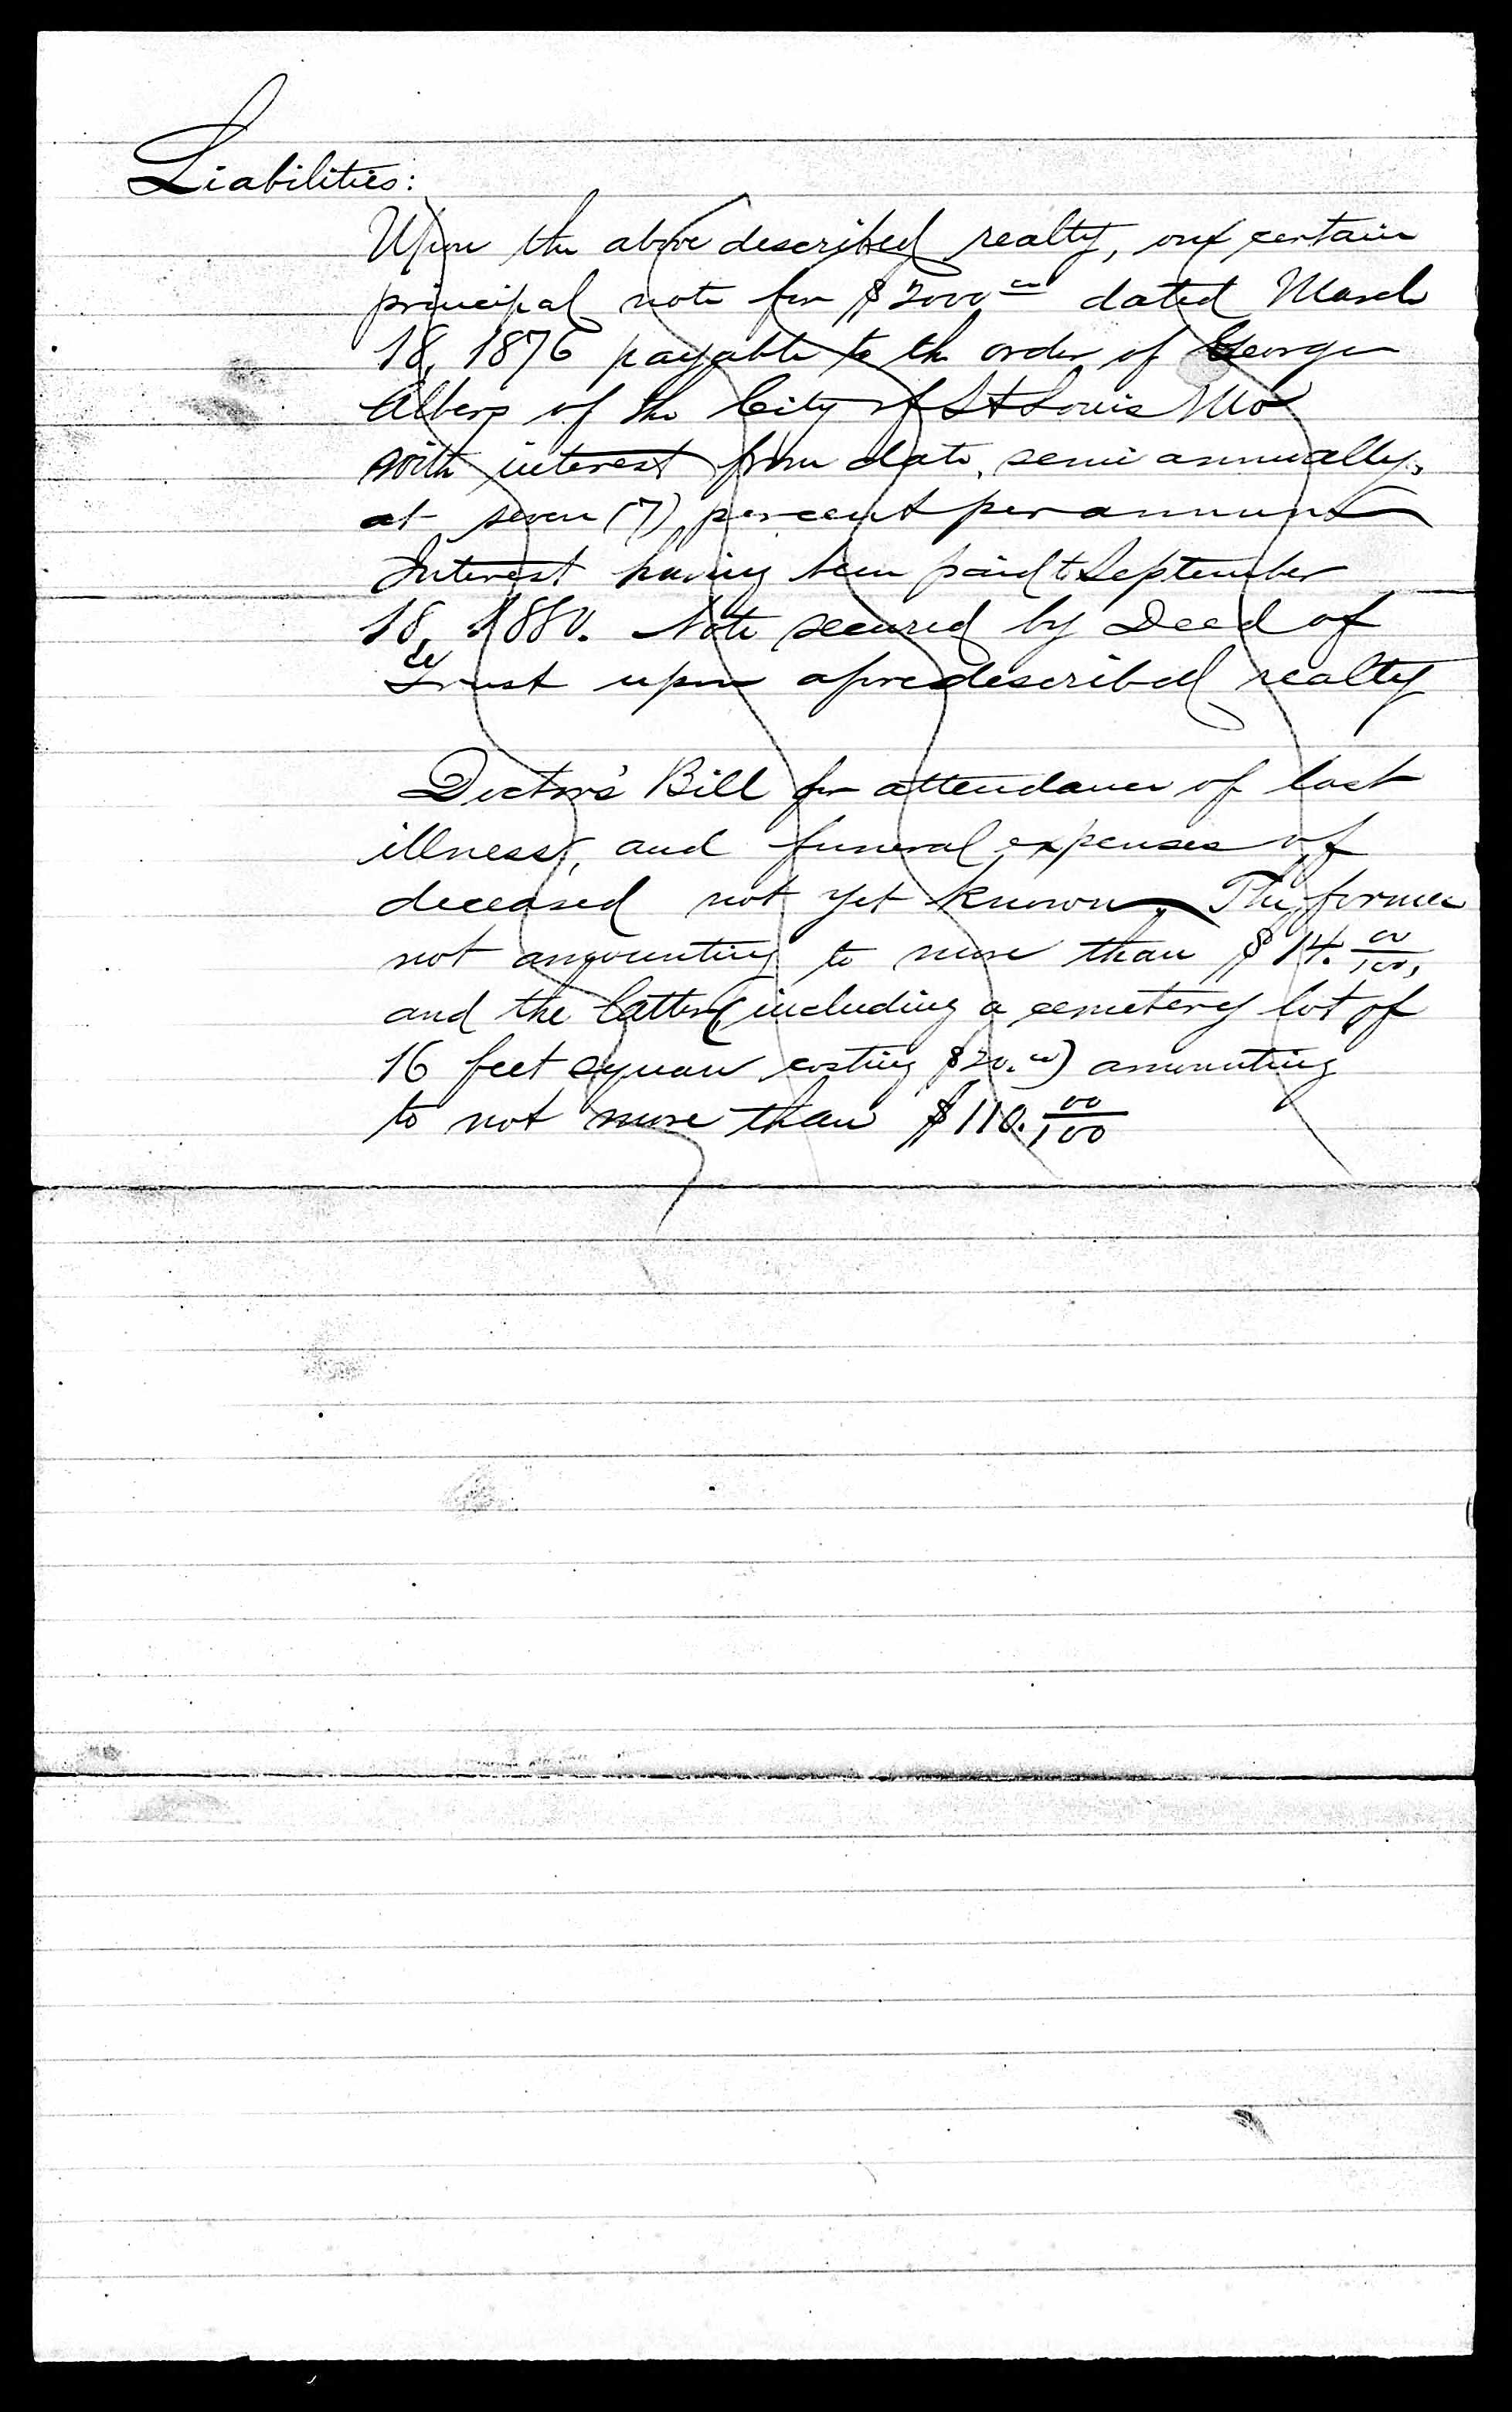 Liabilities:
Upon the above described realty, one certain
principal note for $2000 00 dated March
18, 1876 payable to the order of George
Albers of the City of St Louis Mo
with interest from date, semi annually,
at seven (7) percent per annum
Interest having been paid to September
18, 1880. Note secured by Deed of
Trust upon aforedescribed realty
Doctor's Bill for attendance of last
illness, and funeral expenses of
deceased not yet known. The former
not amounting to more than $14. 00/100,
and the latter (including a cemetery lot of
16 feet square costing $20.00) amounting
to not more than $110. 00/100